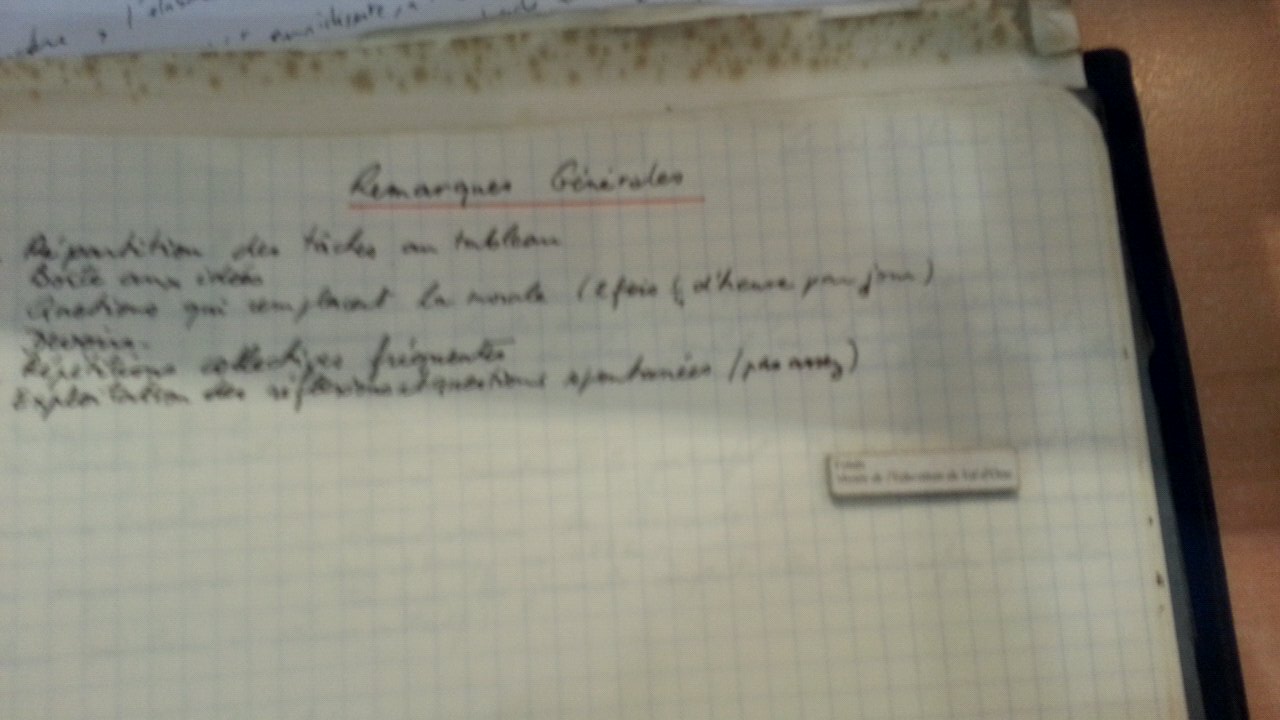 l'elabo
enrichissante, a
Remarques Générales
Répartition des tâches au tableau
Boîte aux idées
Questions qui remplacent la morale (2 fois d'heure par jour)
Dessins.
Répétitions collectives fréquentes
Exploitation des réflexions et questions spontanées (pas assez)
Musée de l'Education du Val d'Oise